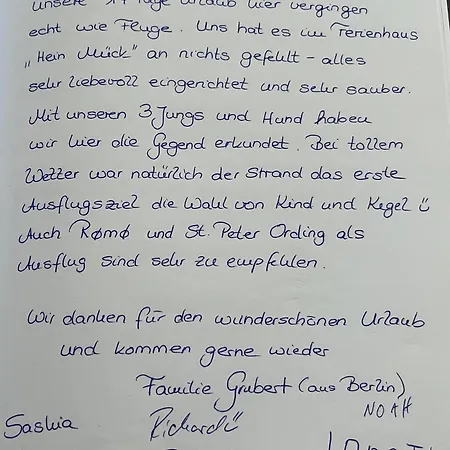 unsere 14 Tage Urlaub hier vergingen
echt wie Fluge. Uns hat es im Ferienhaus
„Hein Mück" an nichts gefehlt - alles
sehr liebevoll eingerichtet und sehr sauber.
Mit unseren 3 Jungs und Hund haben
wir hier die Gegend erkundet. Bei tollem
Wetter war natürlich der Strand das erste
Ausflugsziel die Wahl von Kind und Kegel ü
Auch Rømø und St. Peter Ording als
Ausflug sind sehr zu empfehlen.
Wir danken für den wunderschönen Urlaub
und kommen gerne wieder
Familie Grubert (aus Berlin)
NOAH
Saskia Richard ü